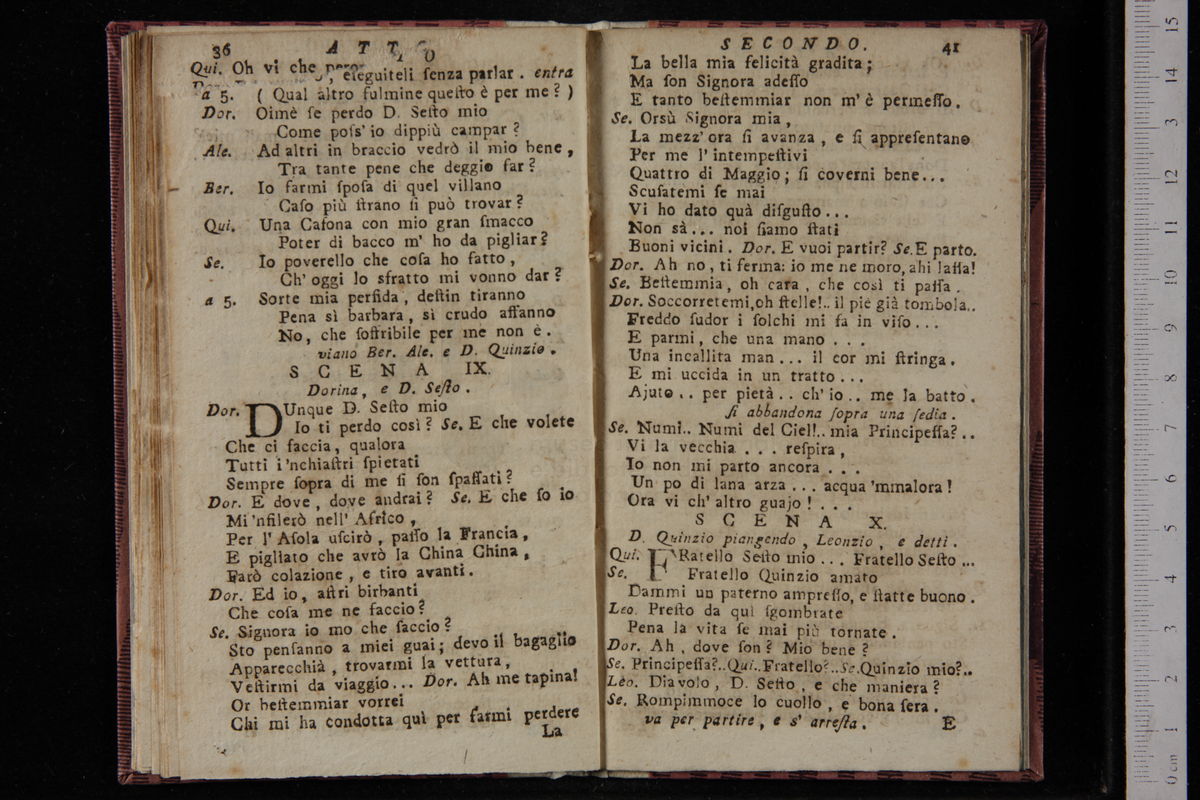 36 A T T O
Qui. Oh vi che
, eſeguiteli ſenza parlar. entra
a 5. ( Qual altro fulmine queſto è per me? )
Dor. Oimè ſe perdo D. Seſto mio
Come poſs' io dippiù campar?
Ale. Ad altri in braccio vedrò il mio bene,
Tra tante pene che deggio far?
Ber. Io farmi ſpoſa di quel villano
Caſo più ſtrano ſi può trovar?
Qui. Una Caſona con mio gran ſmacco
Poter di bacco m' ho da pigliar?
Se. Io poverello che coſa ho fatto,
Ch' oggi lo sfratto mi vonno dar?
a 5. Sorte mia perfida, deſtin tiranno
Pena sì barbara, sì crudo affanno
No, che ſoffribile per me non è.
viano Ber. Ale. e D. Quinzio.
S C E N A IX.
Dorina, e D. Seſto.
Dor. DUnque D. Seſto mio
Io ti perdo così? Se. E che volete
Che ci faccia, qualora
Tutti i 'nchiaſtri ſpietati
Sempre ſopra di me ſi ſon ſpaſſati?
Dor. E dove, dove andrai? Se. E che ſo io
Mi 'nfilerò nell' Africo,
Per l' Aſola uſcirò, paſſo la Francia,
E pigliato che avrò la China China,
Farò colazione, e tiro avanti.
Dor. Ed io, aſtri birbanti
Che coſa me ne faccio?
Se. Signora io mo che faccio?
Sto penſanno a miei guai; devo il bagaglio
Apparecchià, trovarmi la vettura,
Veſtirmi da viaggio... Dor. Ah me tapina!
Or beſtemmiar vorrei
Chi mi ha condotta quì per farmi perdere
La
SECONDO. 41
La bella mia felicità gradita;
Ma ſon Signora adeſſo
E tanto beſtemmiar non m' è permeſſo.
Se. Orsù Signora mia,
La mezz' ora ſi avanza, e ſi appreſentano
Per me l' intempeſtivi
Quattro di Maggio; ſi coverni bene...
Scuſatemi ſe mai
Vi ho dato quà diſguſto...
Non sà... noi ſiamo ſtati
Buoni vicini. Dor. E vuoi partir? Se. E parto.
Dor. Ah no, ti ferma: io me ne moro, ahi laſſa!
Se. Beſtemmia, oh cara, che così ti paſſa.
Dor. Soccorretemi, oh ſtelle!.. il piè già tombola..
Freddo ſudor i ſolchi mi fa in viſo...
E parmi, che una mano . . .
Una incallita man... il cor mi ſtringa.
E mi uccida in un tratto...
Ajuto.. per pietà.. ch' io.. me la batto.
ſi abbandona ſopra una ſedia.
Se. Numi.. Numi del Ciel!.. mia Principeſſa?..
Vi la vecchia . . . reſpira,
Io non mi parto ancora . . .
Un po di lana arza... acqua 'mmalora!
Ora vi ch' altro guajo! . . .
S C E N A X.
D. Quinzio piangendo, Leonzio, e detti.
Qui. FRatello Seſto mio... Fratello Seſto...
Se. Fratello Quinzio amato
Dammi un paterno ampreſſo, e ſtatte buono.
Leo. Preſto da quì ſgombrate
Pena la vita ſe mai più tornate.
Dor. Ah, dove ſon? Mio bene?
Se. Principeſſa?..Qui..Fratello?..Se.Quinzio mio?..
Leo. Diavolo, D. Seſto, e che maniera?
Se. Rompimmoce lo cuollo, e bona ſera.
va per partire, e s' arreſta. E
0 cm 1 2 3 4 5 6 7 8 9 10 11 12 13 14 15